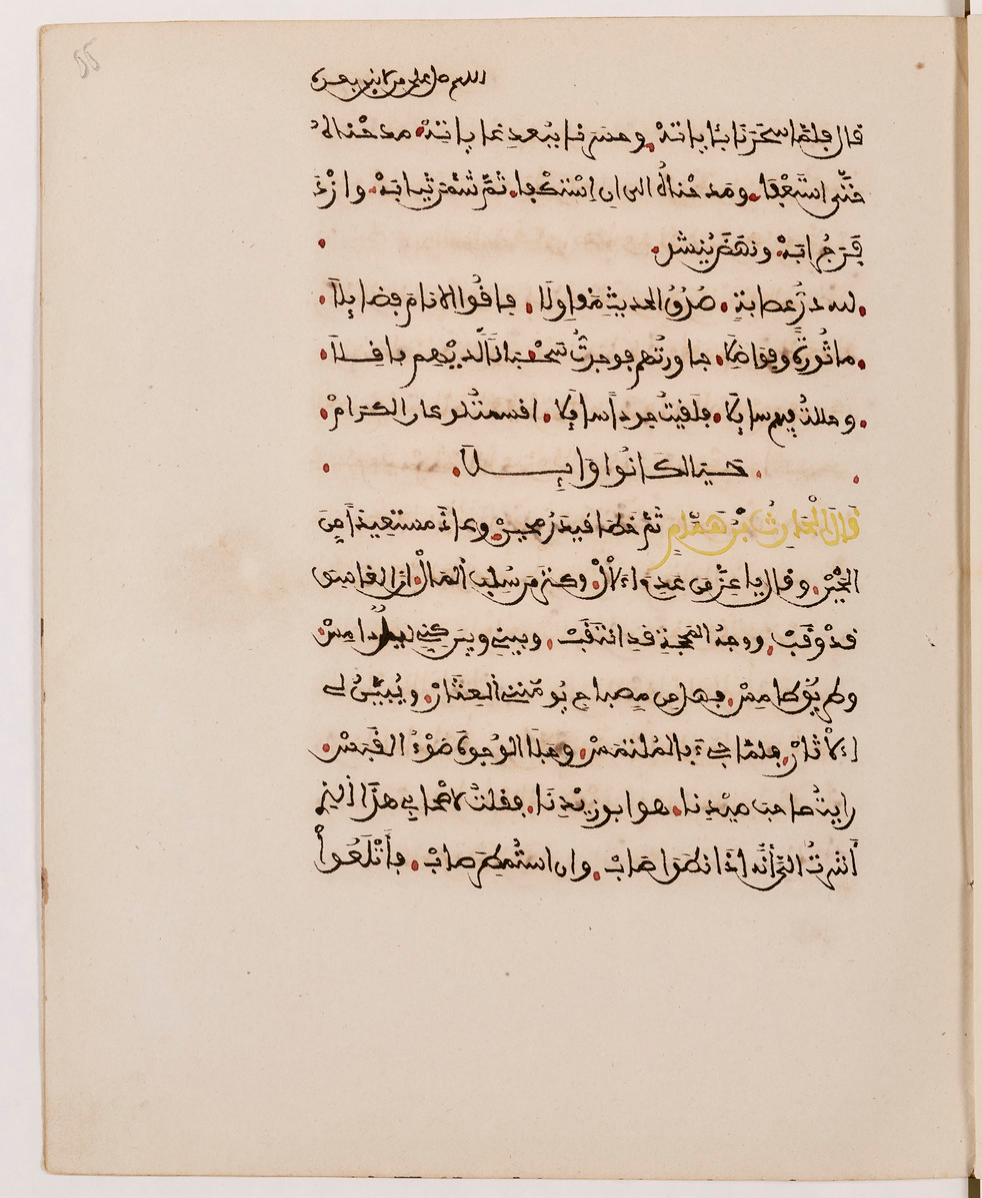 اللهم صل على من لا نبي بعده
قال فلمّا سحَرنَا بئاياته. وحسَرنا ببعدِ غاياته. مدحْناهُ
حتّى اسْتَعْفا. ومَدحْناهُ الى ان اسْتكْفا. ثمّ شمَّر ثيابَهْ. وازْدَ
فَرَ جُرابَهْ. ونهَضَ يُنشد.
لله درُّ عصابةٍ. صُدُقُ الحديثِ مَقاولَا. فاقُوا الانامَ فضايلَا.
ماثُورةً وفواضلَا. حاورتُهم فوجدتُ سَحْبَانَا لَديْهِم باقِلَا.
وحللتُ فِيهم سايِلًا. فلفيتُ جوداً سايلَا. اقسمتُ لو كان الكرامْ.
حَيَا لكانُوا وَابِلَا.
قالَ الْحَارثُ بْنُ هَمّامٍ ثمّ خطا قيدَ رُمحيْن. وعادَ مستعيذاً مِنَ
الحَيْن. وقال ياعِزَّ من عدِمَ الآلْ. وكنزَ من سُلب المالْ. انّ الغاسِق
قدْ وقَبْ. ووجهُ المحَجّةِ قد انتقَبْ. وبينِي وبينَ كنِي ليلٌ دامِسْ.
وطريقٌ طامِسْ. فهل مِن مِصباحٍ يُومّننِي العِثارْ. ويُبيّنُ لِي
الآثارْ. فلمّا جِيءَ بالمُلتمَسْ. وجلَا الوُجوهَ ضَوْءُ القَبَسْ.
رايتُ صاحبَ صيْدِنا. هو ابو زيْدِنَا. فقلتُ لاصْحابِي هذَا الذِي
أشَرتُ الَى أنَّه اذَا نطقَ اصَابْ. وان استُمطِرَ صابْ. فأَتْلَعُواْ